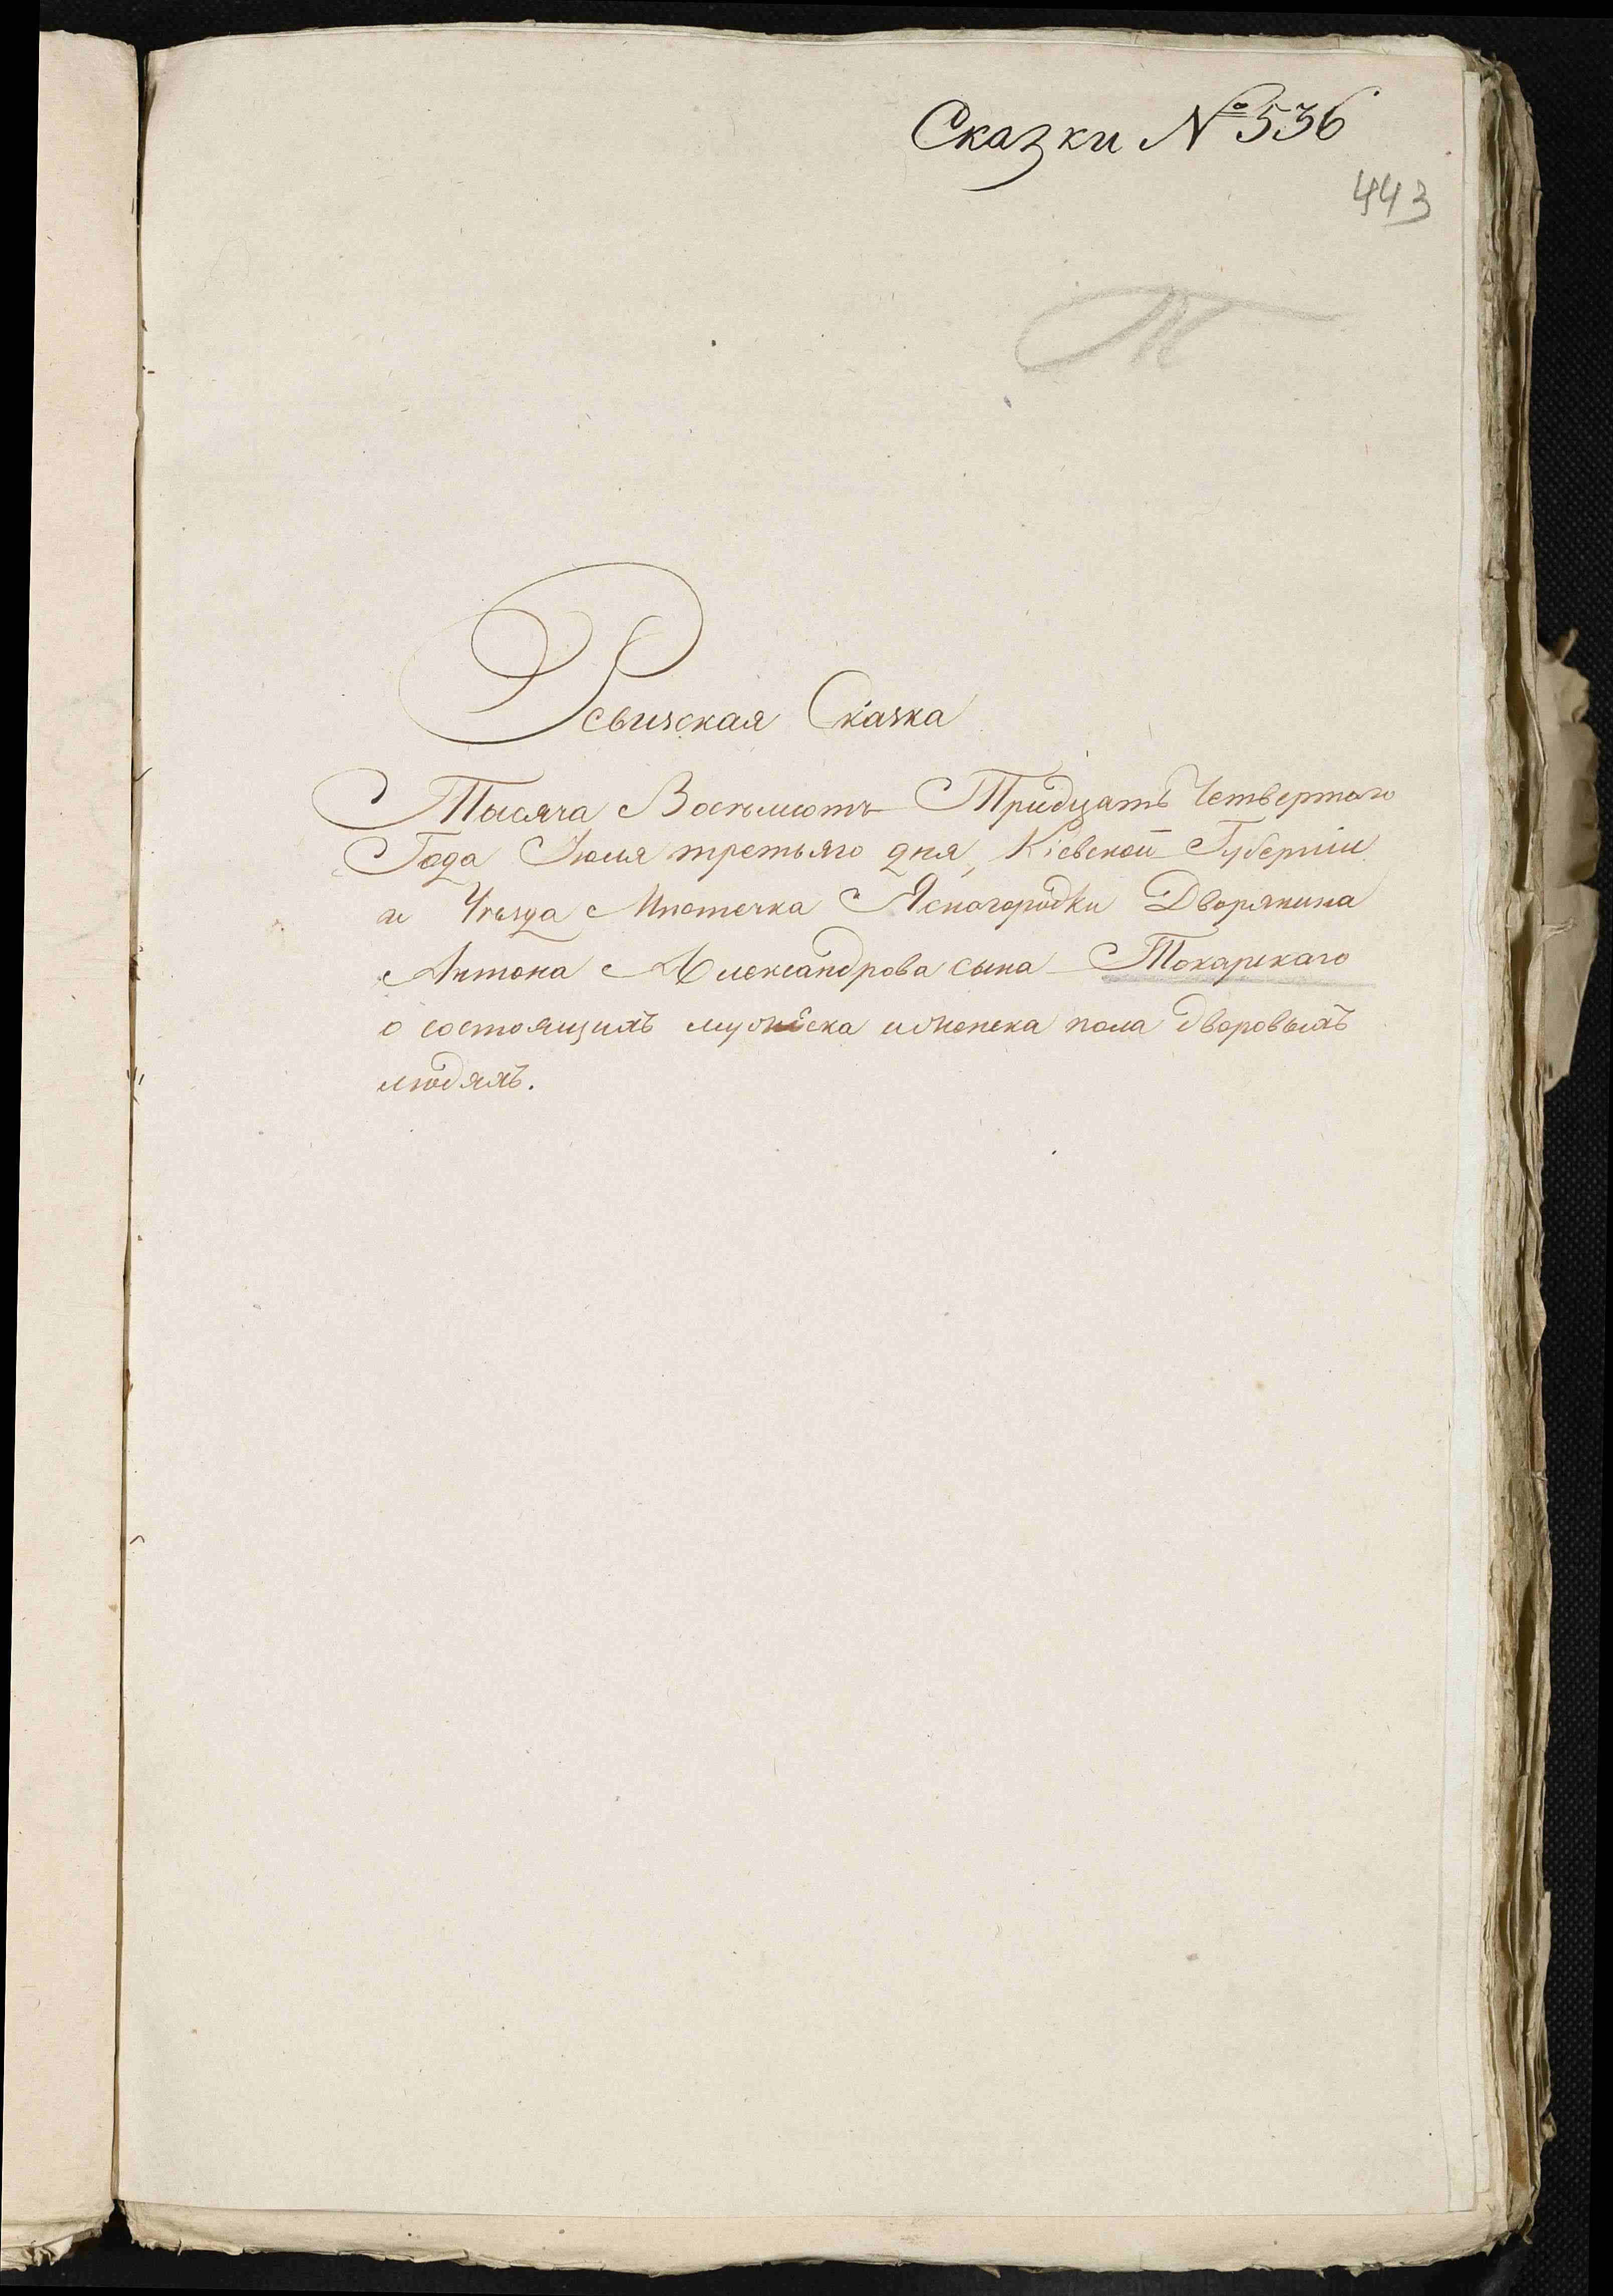 Сказки № 536
443
Т
Ревизская Сказка
Тысяча Восемьсотъ Тридцать Четвертого
Года Июля третьяго дня, Кіевской Губерніи
и Уѣзда Мѣстечка Ясногородки Дворянина
Антона Александрова сына Токарскаго
о состоящихъ мужеска и женска пола дворовыхъ
людяхъ.